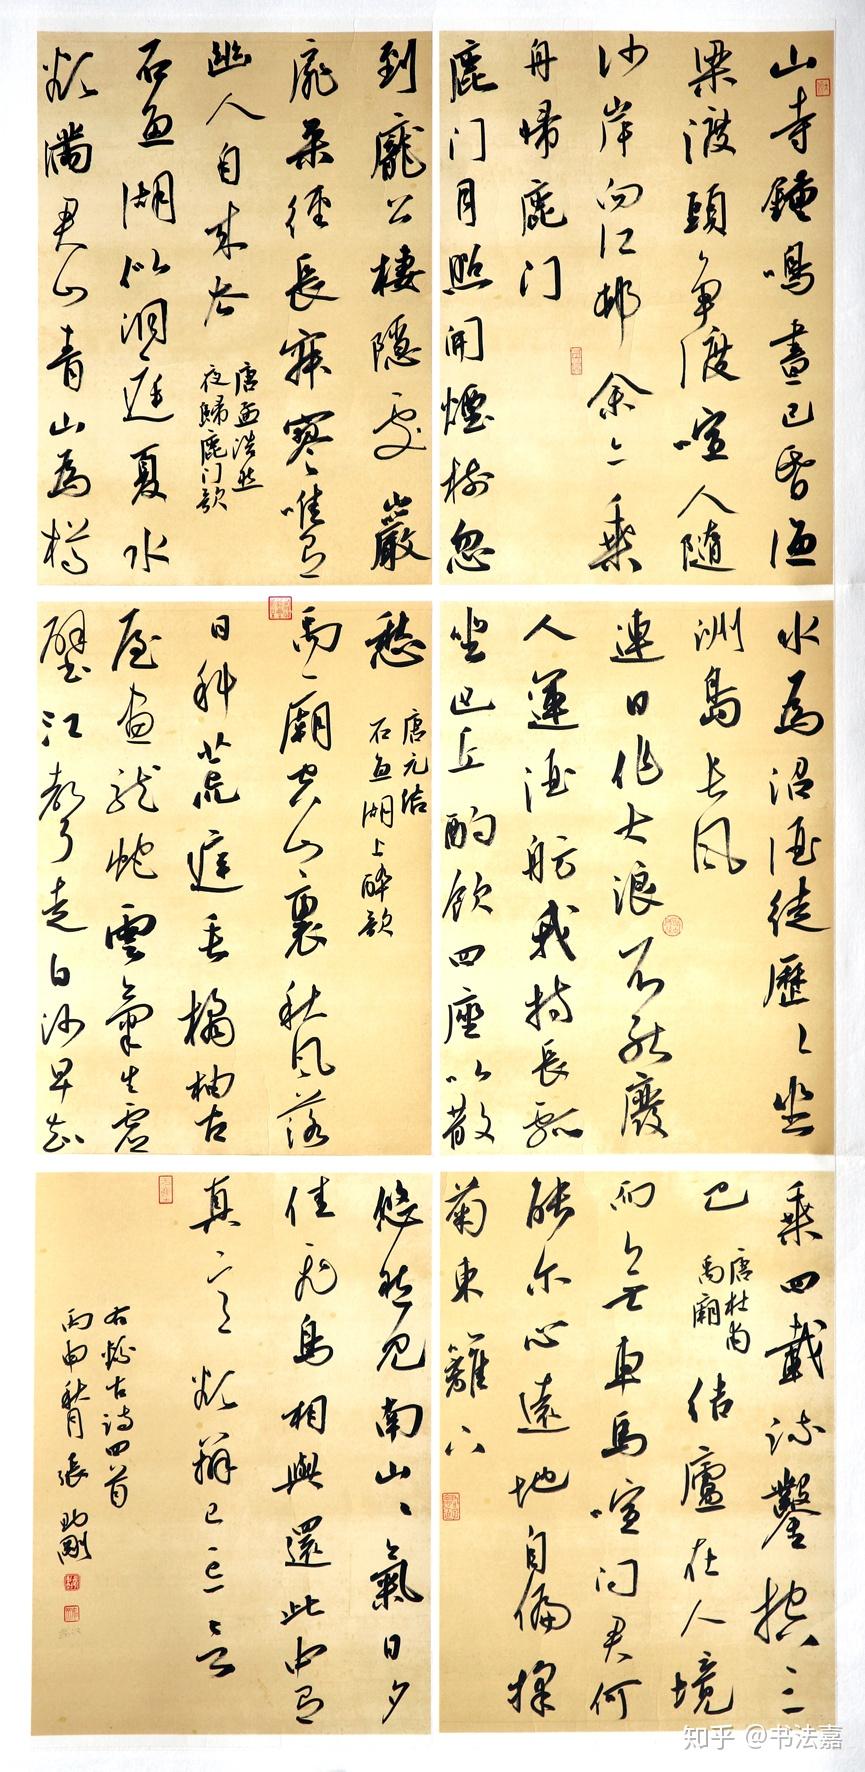 山寺鐘鳴晝已昏漁
梁渡頭争渡喧人隨
沙岸向江邨余亦乘
舟歸鹿门
鹿门月照開煙樹忽
到龐公棲隱處巖
扉松徑長寂寥唯有
幽人自来去
唐孟浩然
夜歸鹿门歌
石魚湖似洞庭夏水
欲滿君山青山為樽
水為沼酒徒歷々坐
洲島长风
連日作大浪不能廢
人運酒舫我持長瓢
坐巴丘酌飲四座以散
愁
唐元结
石魚湖上醉歌
禹廟空山裏秋风落
日斜荒庭垂橘柚古
屋畫龍蛇雲氣生虛
壁江聲走白沙早知
乘四載疏鑿控三
巴
唐杜甫
禹廟
结廬在人境
而无車馬喧问君何
能尔心遠地自偏採
菊東籬下
悠然見南山々氣日夕
佳飛鳥相與還此中有
真意欲辯已忘言
右抄古詩四首
丙申秋月張剛
知乎 @书法嘉